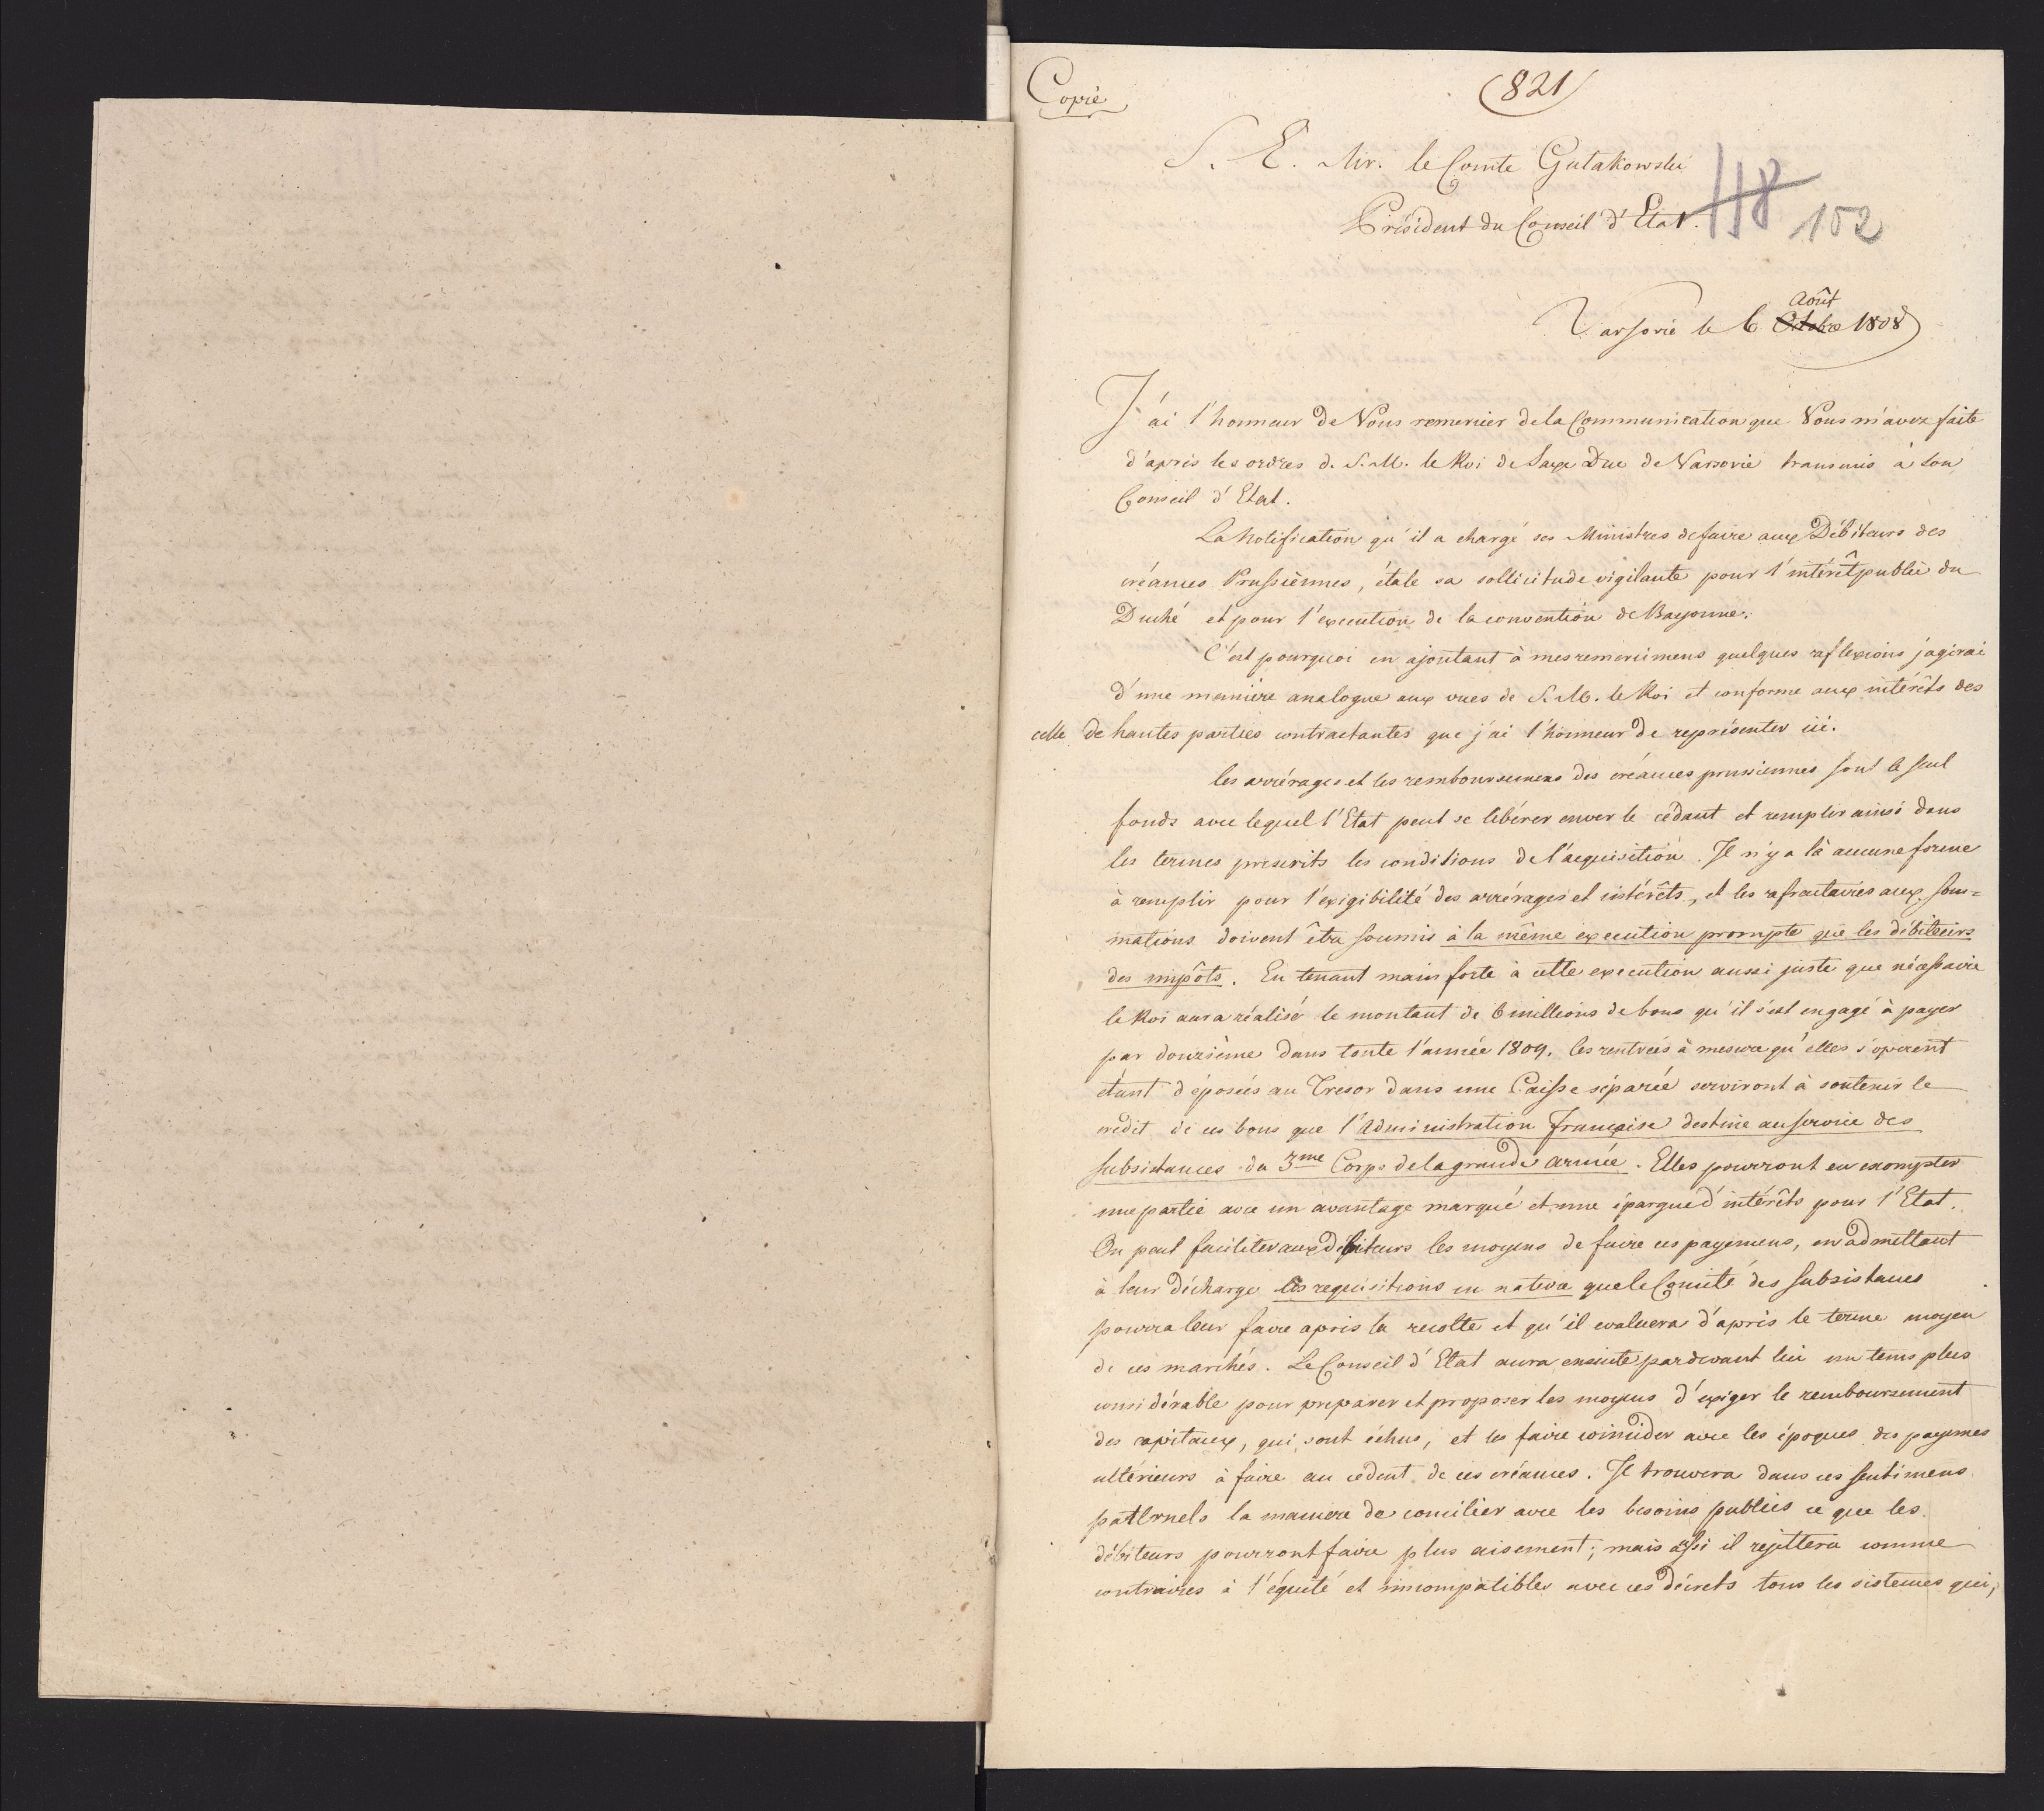 Copie
(821)
S. E. Mr. le Comte Gutakowski
Président du Conseil d'Etat.
118 102
Août
Varsovie le 6 Octobre 1808
J'ai l'honneur de Vous remercier de la Communication que Vous m'avez faite
d'après les ordres d. S. M. le Roi de Saxe Duc de Varsovie transmis à son
Conseil d'Etat.
La Notification qu'il a chargé ses Ministres de faire aux Débiteurs des
créances Prussiènnes, étale sa sollicitude vigilante pour l'intérêt public du
Duché et pour l'execution de la convention de Bayonne.
C'est pourquoi en ajoutant à mes remercimens quelques reflexions j'agirai
d'une manière analogue aux vues de S. M. le Roi et conforme aux intérêts des
celle de hautes parties contractantes que j'ai l'honneur de représenter ici.
les arrérages et les remboursemens des créances prussiennes sont le seul
fonds avec lequel l'Etat peut se libérer enver le cédant et remplir ainsi dans
les termes prescrits les conditions de l'acquisition. Il n'y a là aucune forme
à remplir pour l'exigibilité des arrérages et intérêts, et les refractaires aux som=
mations doivent être soumis à la même execution prompte que les débiteurs
des impôts. En tenant main forte à cette execution aussi juste que nécessaire
le Roi aura réalisé le montant de 6 millions de bons qu'il s'est engagé à payer
par douzième dans toute l'année 1809. les rentrées à mesure qu'elles s'operent
étant déposées au Tresor dans une Caisse séparée serviront à soutenir le
crédit de ces bons que l'Administration Française destine au service des
subsistances du 3me Corps de la grande armée. Elles pourront en exompter
une partie avec un avantage marqué et une épargne d'intérêts pour l'Etat.
On peut faciliter aux débiteurs les moyens de faire ces payemens, en admettant
à leur décharge les requisitions en nature que le Comité des subsistances
pourra leur faire après la recolte et qu'il evaluera d'après le terme moyen
de ces marchés. Le Conseil d'Etat aura ensuite pardevant lui un tems plus
considérable pour preparer et proposer les moyens d'exiger le remboursement
des capitaux, qui sont échus, et les faire coincider avec les époques des payemes
ultérieurs à faire au cédent de ces créances. Il trouvera dans ces sentimens
paternels la maniere de concilier avec les besoins publics ce que les
débiteurs pourront faire plus aisement; mais assi il rejettera comme
contraires à l'équité et incompatibles avec ces décrets tous les sistemes qui,